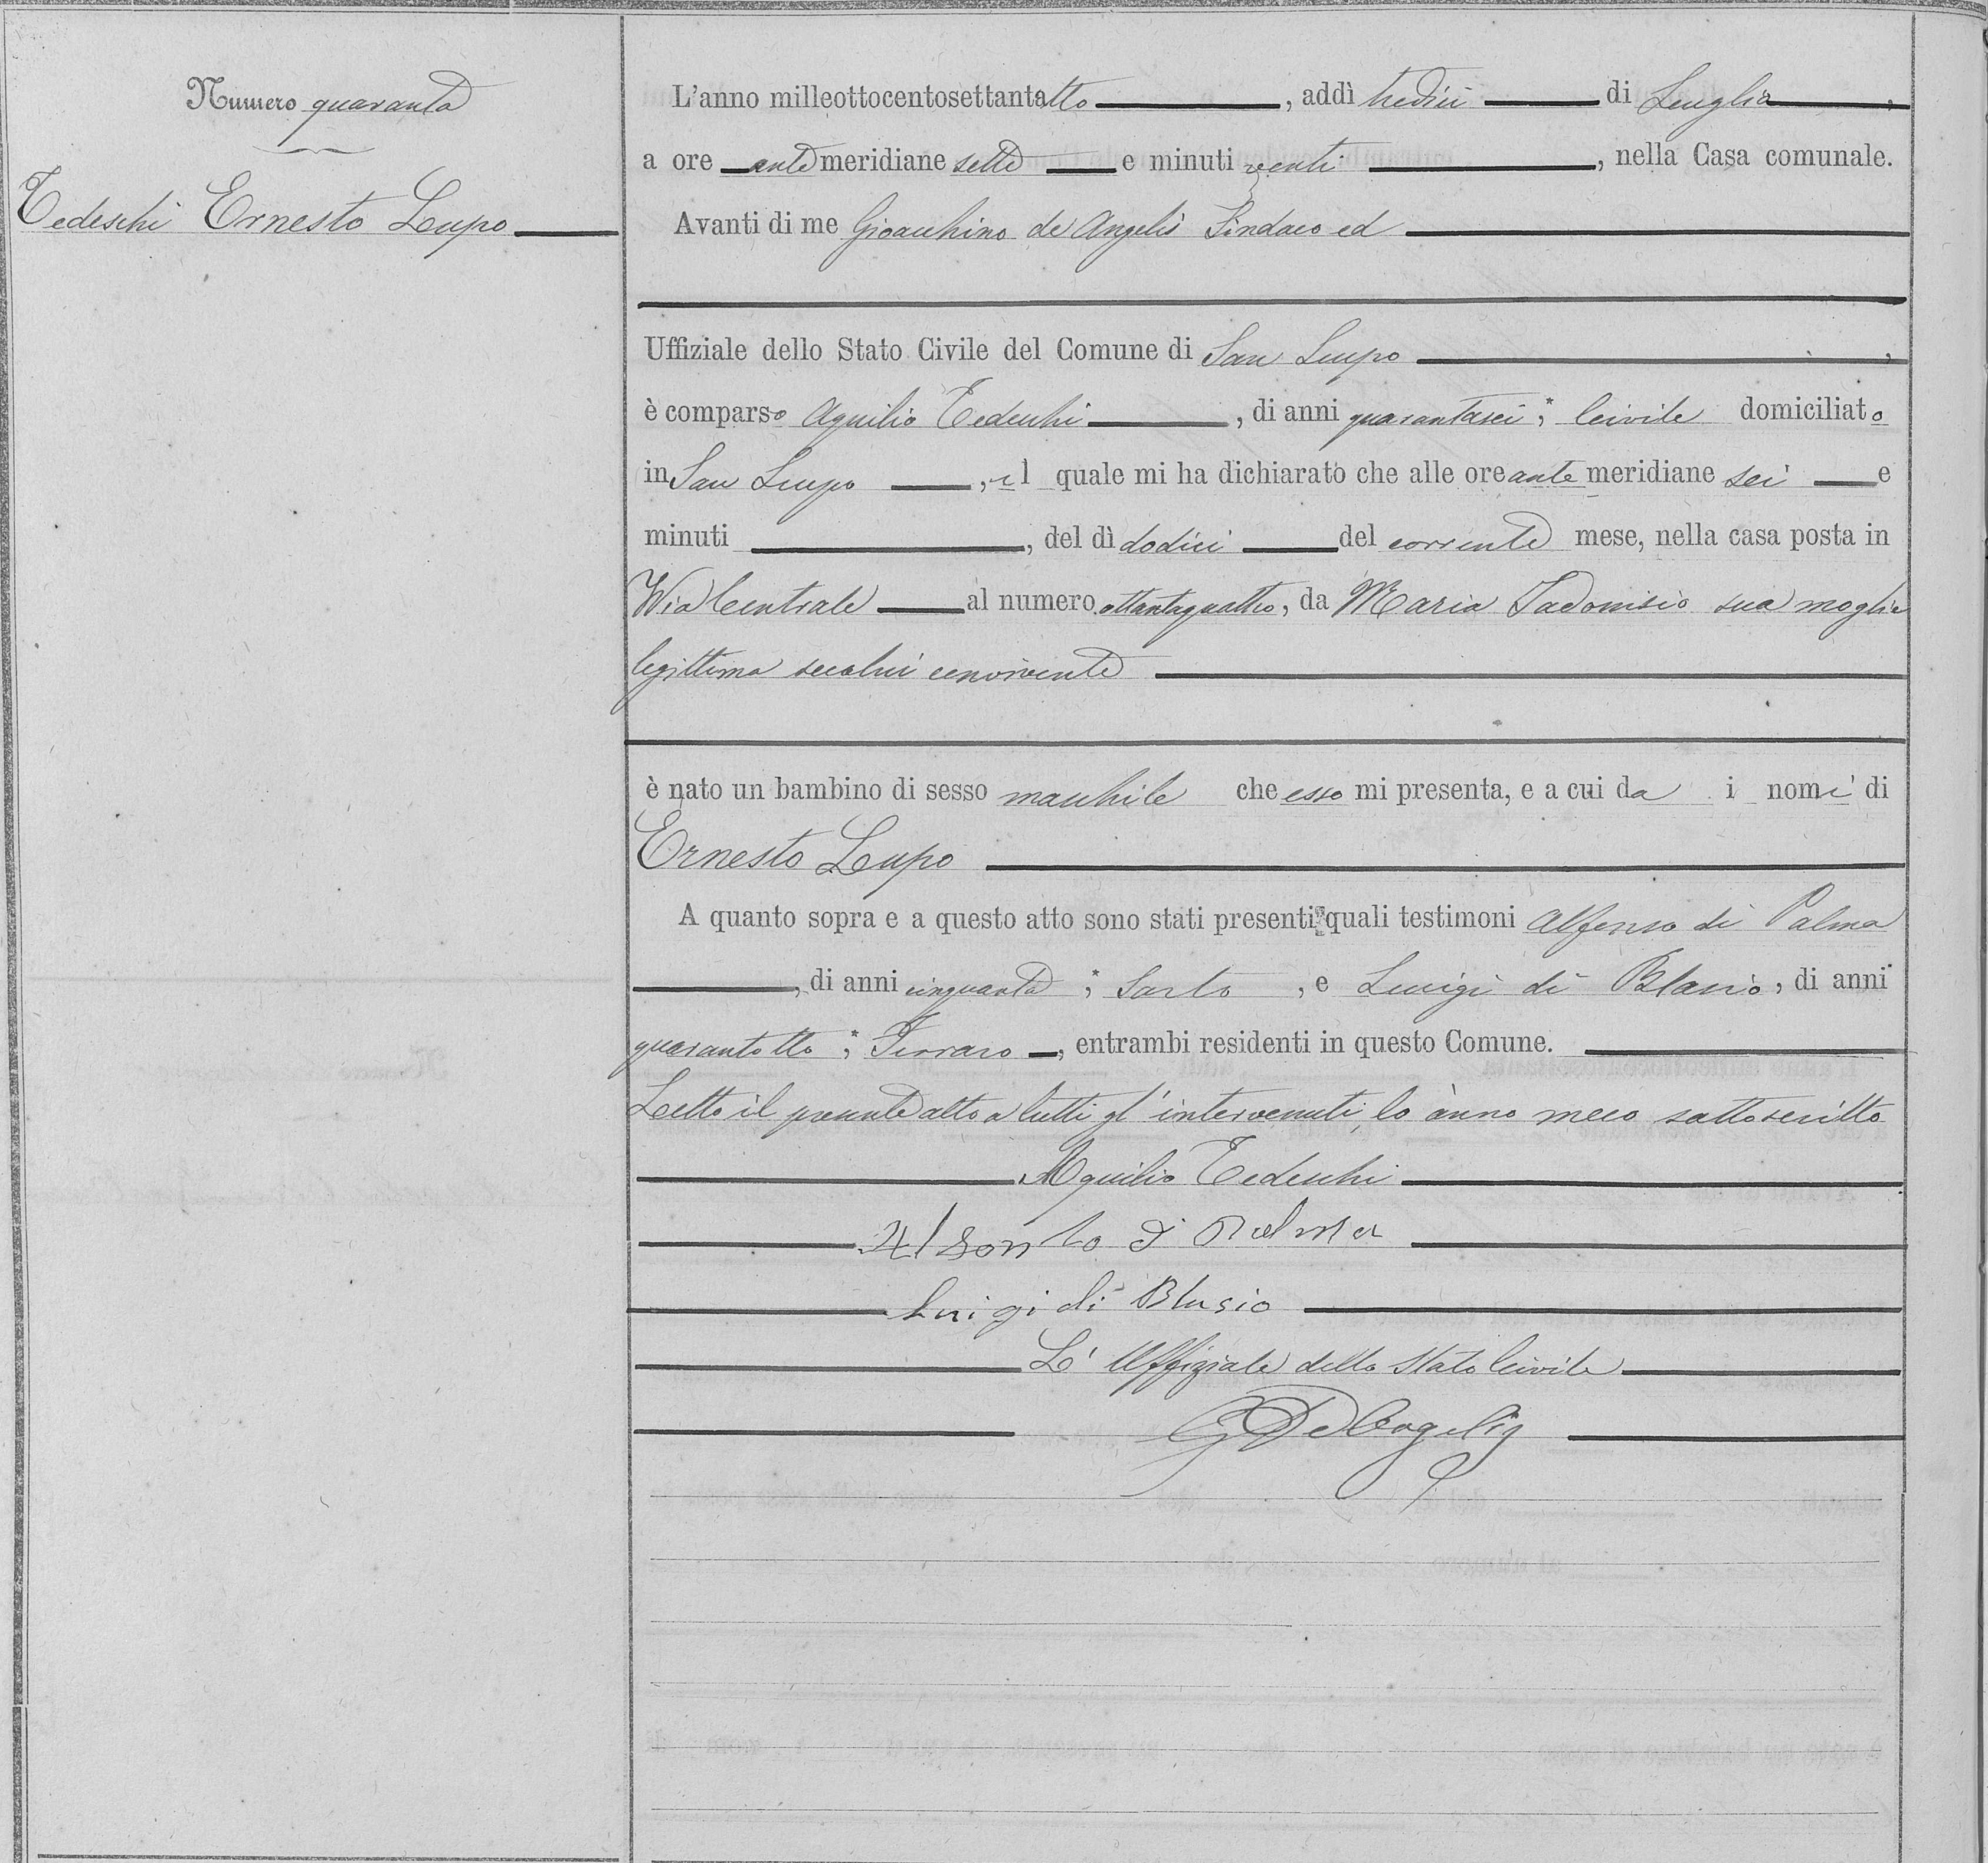 Numero quaranta
Tedeschi Ernesto Lupo
L'anno milleottocentosettantotto, addì tredici di Luglio,
a ore antemeridiane sette e minuti venti, nella Casa comunale.
Avanti di me Gioacchino de Angelis Sindaco ed
Uffiziale dello Stato Civile del Comune di San Lupo,
è comparso Aquilio Tedeschi, di anni quarantasei, civile domiciliato
in San Lupo, il quale mi ha dichiarato che alle ore antemeridiane sei e
minuti, del dì dodici del corrente mese, nella casa posta in
Via Centrale al numero ottantaquattro, da Maria Iadonisio sua moglie
legittima secolui convivente
è nato un bambino di sesso maschile che esso mi presenta, e a cui da i nomi di
Ernesto Lupo
A quanto sopra e a questo atto sono stati presenti quali testimoni Alfonso di Palma
, di anni cinquanta, Sarto, e Luigi di Blasio, di anni
quarantotto, Ferraro, entrambi residenti in questo Comune.
Letto il presente atto a tutti gl'intervenuti, lo ànno meco sottoscritto
Aquilio Tedeschi
di Palma
Luigi di Blasio
L'Uffiziale dello Stato Civile
G De Angelis